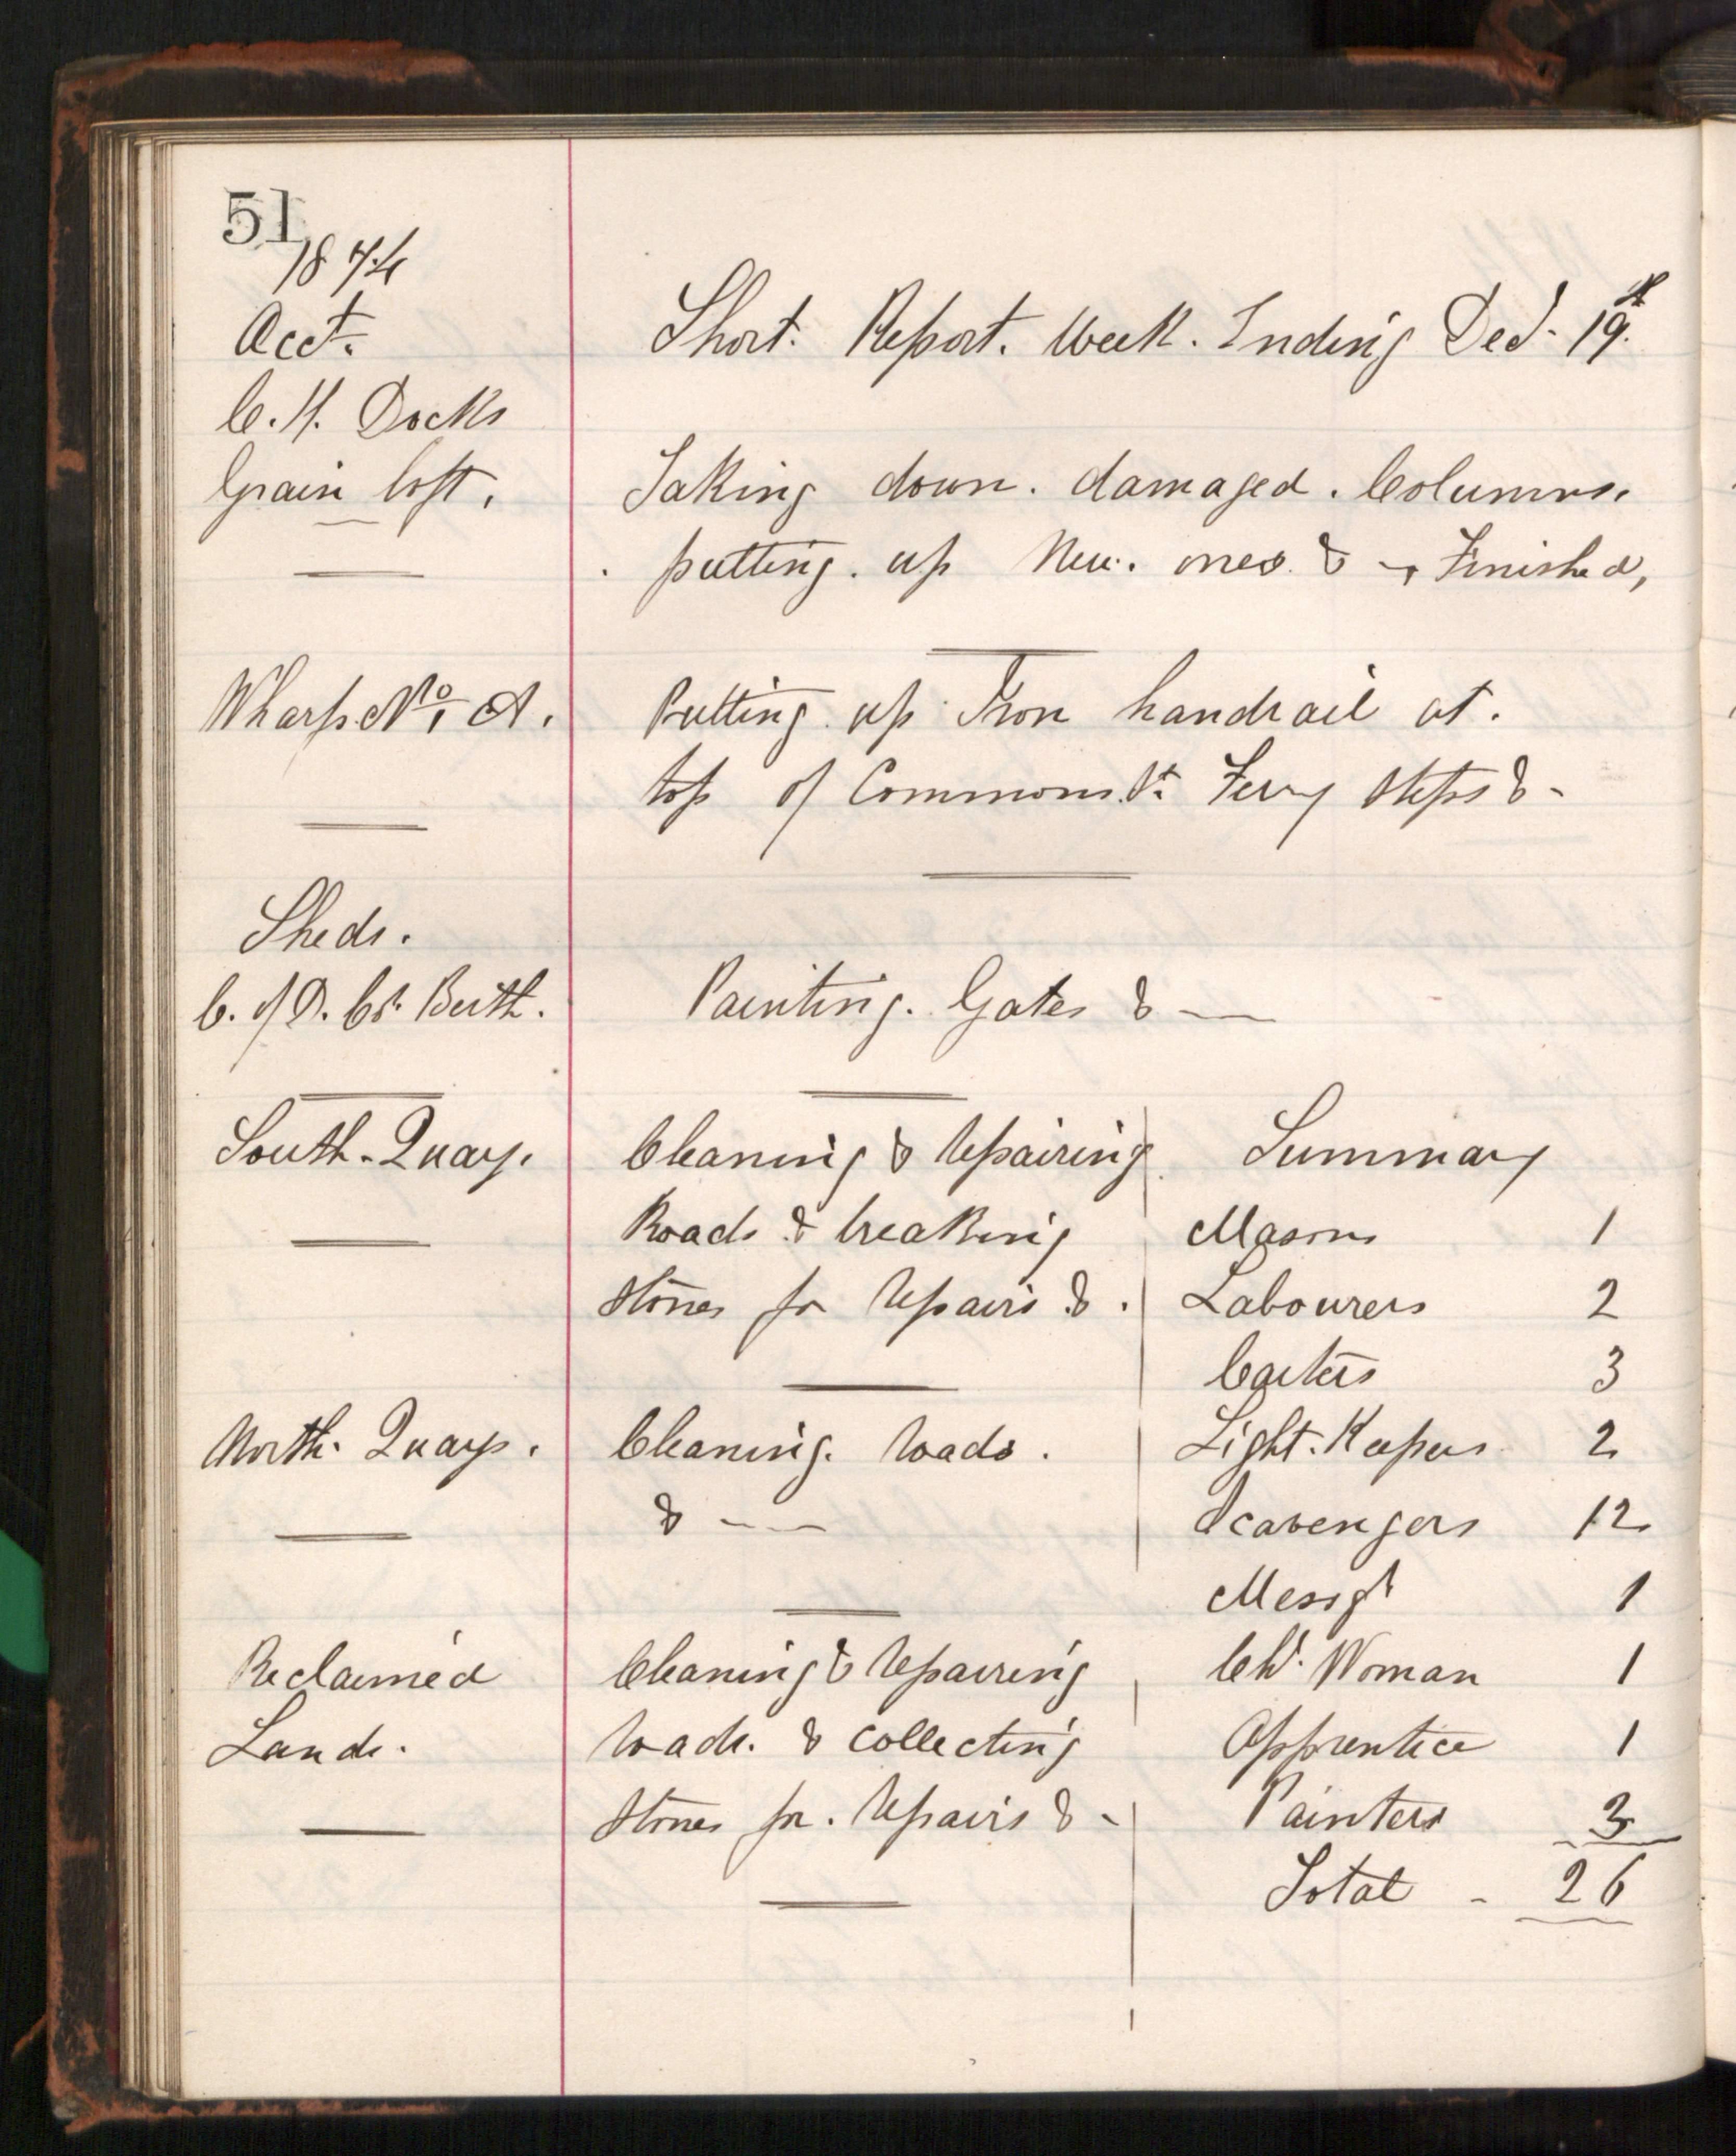 51
1874
Acct.
C. H. Docks
Grain loft.
Short. Report. Week. Ending Dec. 19th
Taking down. damaged. Columns.
putting. up New. ones. & - Finished,
Wharf. No. A.
Putting. up Iron handrail at.
top of Commons St. Ferry Steps & -
Sheds.
C. of D. Co. Berth.
Painting. Gates & —
South. Quay.
Cleaning & repairing
Roads & breaking
Stones for repairs & .
North. Quays.
Cleaning. roads.
& - —
Reclaimed
Lands.
Cleaning & repairing
roads. & collecting
Stones for. repairs & -
Summary
Masons 1
Labourers 2
Carters 3
Light. Keepers 2
Scavengers 12
Messgr 1
Chr. Woman 1
Apprentice 1
Painters 3
Total - 26